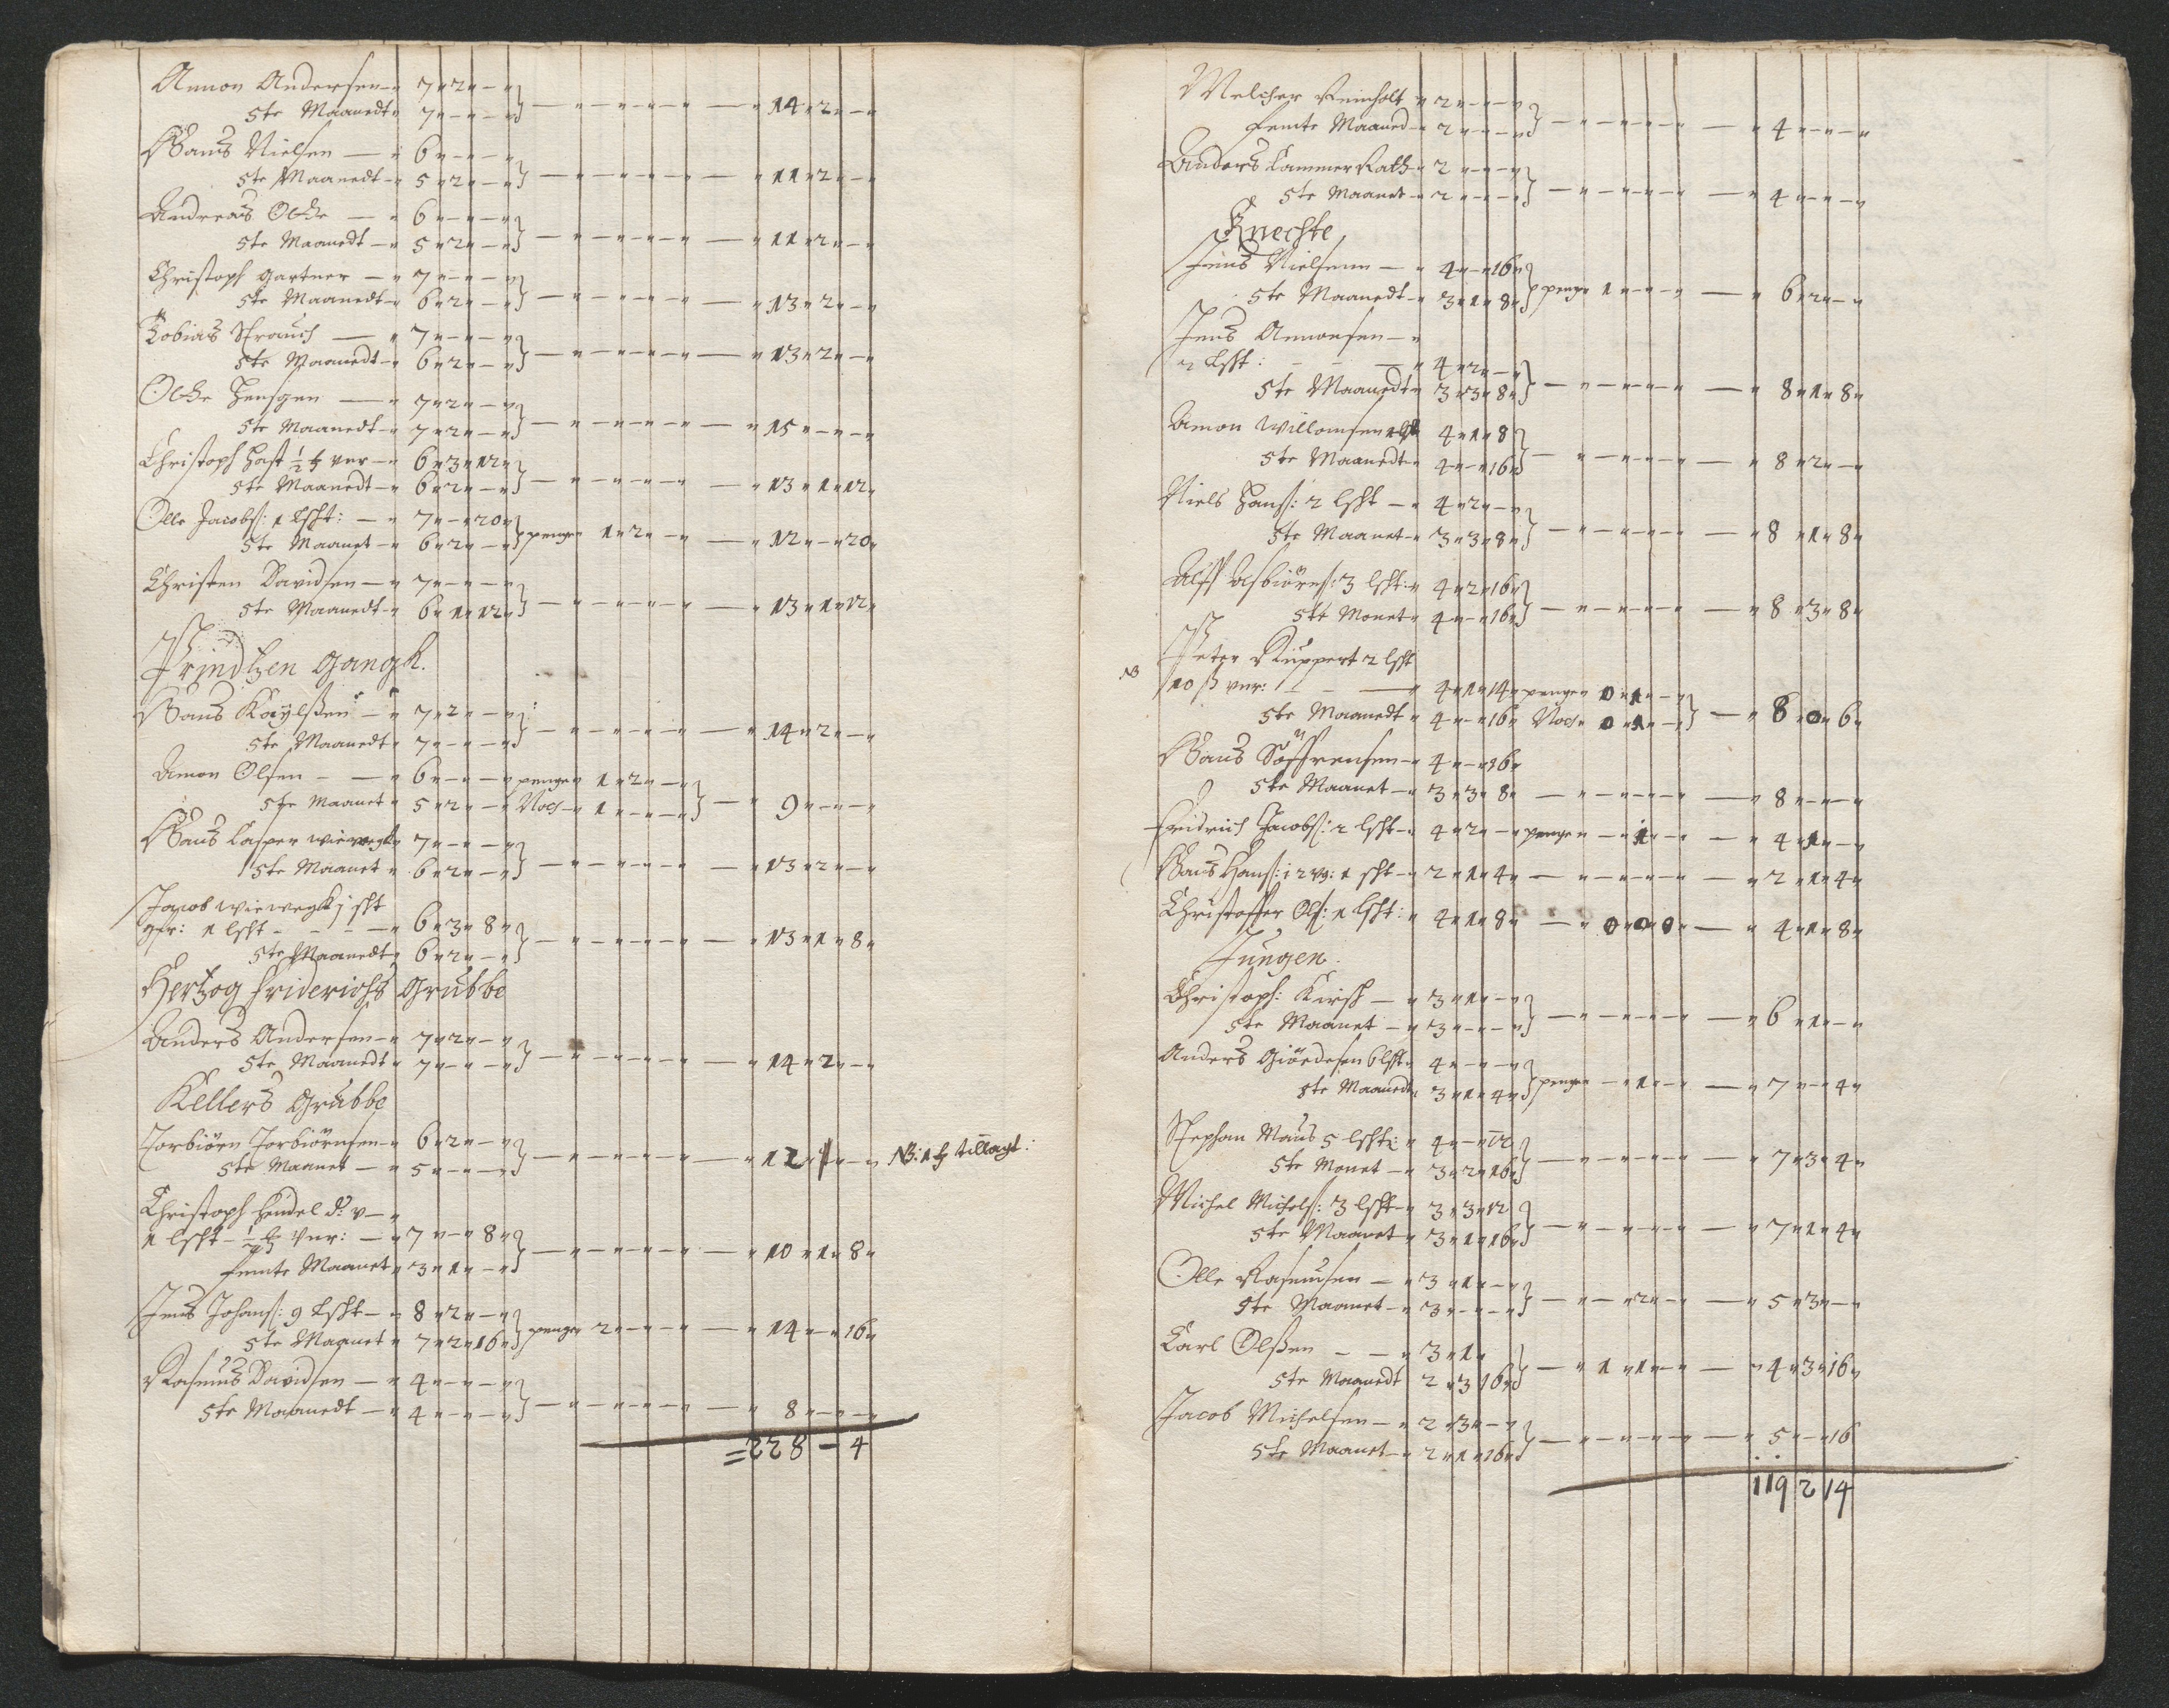 Amon Andersen - 7 " 2 " - "
5te Maanedt " 7 " - " - " } - " - " - " - " - " 14 " 2 " - "
Hans Nielsen - " 6 " - " - "
5te Maanedt - " 5 " 2 " - " } - " - " - " - " - " 11 " 2 " - "
Andreas Othe - " 6 " - " - "
5te Maanedt - " 5 " 2 " - " } - " - " - " - " - " 11 " 2 " - "
Christoph gartner - " 7 " - " - "
5te Maanedt - " 6 " 2 " - " } - " - " - " - " - " 13 " 2 " - "
Tobias Strauch - " 7 " - " - "
5te Maanedt - " 6 " 2 " - " } - " - " - " - " - " 13 " 2 " - "
Othe Hensgen - " 7 " 2 " - "
5te Maanedt - " 7 " 2 " - " } - " - " - " - " - " 15 " - " - "
Christoph Hast ½ ver - " 6 " 3 " 12 "
5te Maanedt - " 6 " 2 " - " } - " - " - " - " - " 13 " 1 " 12 "
Olle Jacobs: 1 lscht: - " 7 " - " 20 "
5te Maanet - " 6 " 2 " - " } penge " 1 " 2 " - " - " 12 " - " 20 "
Christen Davidsen - " 7 " - " - "
5te Maanedt - " 6 " 1 " 12 " } - " - " - " - " - " 13 " 1 " 12 "
Prindtzen Gangk.
Hans Kaylssen - " 7 " 2 " - "
5te Maanedt " 7 " - " - " } - " - " - " - " - " 14 " 2 " - "
Amon Olsen - - " 6 " - " - " penge " 1 " 2 " - "
5te Maanet " 5 " 2 " - " Noes - " 1 " - " - " } - " 9 " - " - "
Hans Casper wiewegk " 7 " - " - "
5te Maanet " 6 " 2 " - " } - " - " - " - " - " 13 " 2 " - "
Jacob wiewegk j scht
ger: 1 lscht - - - " 6 " 3 " 8 "
5te Maanedt " 6 " 2 " - " } - " - " - " - " - " 13 " 1 " 8 "
Hertzog Friderichs Grubbe
Anders Andersen - " 7 " 2 " - "
5te Maanedt " 7 " - " - " } - " - " - " - " - " 14 " 2 " - "
Kellers Grubbe
Torbiörn Torbiörnsen - " 6 " 2 " - "
5te Maanet - " 5 " - " - " } - " - " - " - " - " 12 " - " - " NB: 1 tillagt:
Christoph Hendel d: v - "
1 lscht - ½ ver: - " 7 " - " 8 "
femte Maanet " 3 " 1 " - " } - " - " - " - " - " 10 " 1 " 8 "
Jens Johans: 9 lscht - " 8 " 2 " - "
5te Maanet " 7 " 2 " 16 " } penge " 2 " - " - " - " 14 " - " 16 "
Rasmus Davidsen - " 4 " - " - "
5te Maanedt - " 4 " - " - " } - " - " - " - " - " 8 " - " - "
= 228 - 4
Melcher Reinholt " 2 " - " - "
femte Maaned - " 2 " - " - " } - " - " - " - " - " 4 " - " - "
Anders Cammer Rath " 2 " - " - "
5te Maanet - " 2 " - " - " } - " - " - " - " - " 4 " - " - "
Knechte
Jens Nielsenn - " 4 " - " 16 "
5te Maanedt - " 3 " 1 " 8 " } penge 1 " - " - " - " 6 " 2 " - "
Jens Amonsen - "
2 lscht: - - - " 4 " 2 " - "
5te Maanedt " 3 " 3 " 8 " } - " - " - " - " - " 8 " 1 " 8 "
Amon Willomsen 4 " 1 " 8
5te Maanedt " 4 " - " 16 " } - " - " - " - " - " 8 " 2 " - "
Niels Hans: 2 lscht - " 4 " 2 " - "
5te Maanet - " 3 " 3 " 8 " } - " - " - " - " - " 8 " 1 " 8 "
Alff Asbiörns: 3 lscht: " 4 " 2 " 16 "
5te Monet " 4 " - " 16 " } - " - " - " - " - " 8 " 3 " 8 "
NB Peter Ruppert 2 lscht
10 ß ver: - - - " 4 " 1 " 14 " penge " 0 " 1 " - "
5te Maanedt " 4 " - " 16 " Noes " 0 " 1 " - " } - " 8 " 0 " 6 "
Hans Söffrensen - " 4 " - " 16 "
5te Maanet - " 3 " 3 " 8 " - " - " - " - " - " 8 " - " - "
Fridrich Jacobs: 2 lscht - " 4 " 2 " - " penge " - " 1 " - " - " 4 " 1 " - "
Hans Hans: i 2 vg: 1 scht - " 2 " 1 " 4 " - " - " - " - " - " 2 " 1 " 4 "
Christoffer Ols: 1 lscht: " 4 " 1 " 8 " - " 0 " 0 " 0 " - " 4 " 1 " 8 "
Jungen.
Christoph: Kirsch - " 3 " 1 " - "
5te Maanet - " 3 " - " - " } - " - " - " - " - " 6 " 1 " - "
Anders Giördesen 6 lscht " 4 " - " - "
5te Maanedt " 3 " 1 " 4 " } penge " - " 1 " - " - " 7 " - " 4 "
Stephan Maus 5 lscht: " 4 " - " 12 "
5te Monet - " 3 " 2 " 16 " } - " - " - " - " - " 7 " 3 " 4 "
Michel Michels: 3 lscht - " 3 " 3 " 12 "
5te Maanet - " 3 " 1 " 16 " } - " - " - " - " - " 7 " 1 " 4 "
Olle Rasmusen - " 3 " 1 " - "
5te Maanet - " 3 " - " - " } - " - " 2 " - " - " 5 " 3 " - "
Carl Olssen - - " 3 " 1 "
5te Maanedt 2 " 3 16 " } - " 1 " 1 " - " - " 4 " 3 " 16 "
Jacob Michelsen - " 2 " 3 " - "
5te Maanet - " 2 " 1 " 16 " } - " - " - " - " - " 5 " - " 16
119 2 14